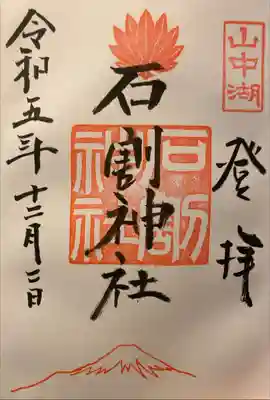 山中湖
登拝
石割神社
石割神社
令和五年十二月二日